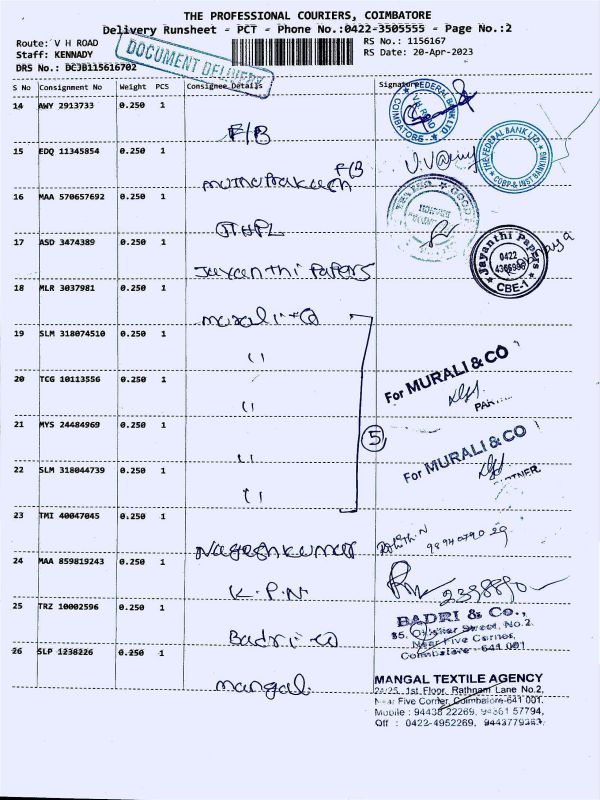 THE PROFESSIONAL COURIERS, COIMBATORE
Delivery Runsheet - PCT - Phone No.:0422-3505555 - Page No.:2
Route: V H ROAD
RS No.: 1156167
Staff: KENNADY
RS Date: 20-Apr-2023
DRS No.: DCJB115616702
DOCUMENT DELIVERY
S No Consignment No Weight PCS Consignee Details Signature
14 AWY 2913733 0.250 1
F/B
FEDERAL BANK LTD
V H ROAD
COIMBATORE
15 EDQ 11345854 0.250 1
F/B
THE FEDERAL BANK LTD.
CORP & INST BANKING
16 MAA 570657692 0.250 1
JHPL
17 ASD 3474389 0.250 1
Jayanthi Papers
Jayanthi Papers
0422
CBE-1
18 MLR 3037981 0.250 1
Murali & Co
19 SLM 318074510 0.250 1
"
For MURALI & CO
20 TCG 10113556 0.250 1
"
21 MYS 24484969 0.250 1
"
5
For MURALI & CO
22 SLM 318044739 0.250 1
"
23 TMI 40047045 0.250 1
Nageshkumar
24 MAA 859819243 0.250 1
K.P.N
25 TRZ 10002596 0.250 1
Badri & Co
BADRI & Co.,
Street, No.2.
Near Five Corner,
Coimbatore - 641 001
26 SLP 1238226 0.250 1
Mangal
MANGAL TEXTILE AGENCY
1st Floor, Rathnam Lane No.2,
Near Five Corner, Coimbatore-641 001.
Mobile : 94438 22269, 94361 57794,
Off : 0422-4952269, 9443779363.